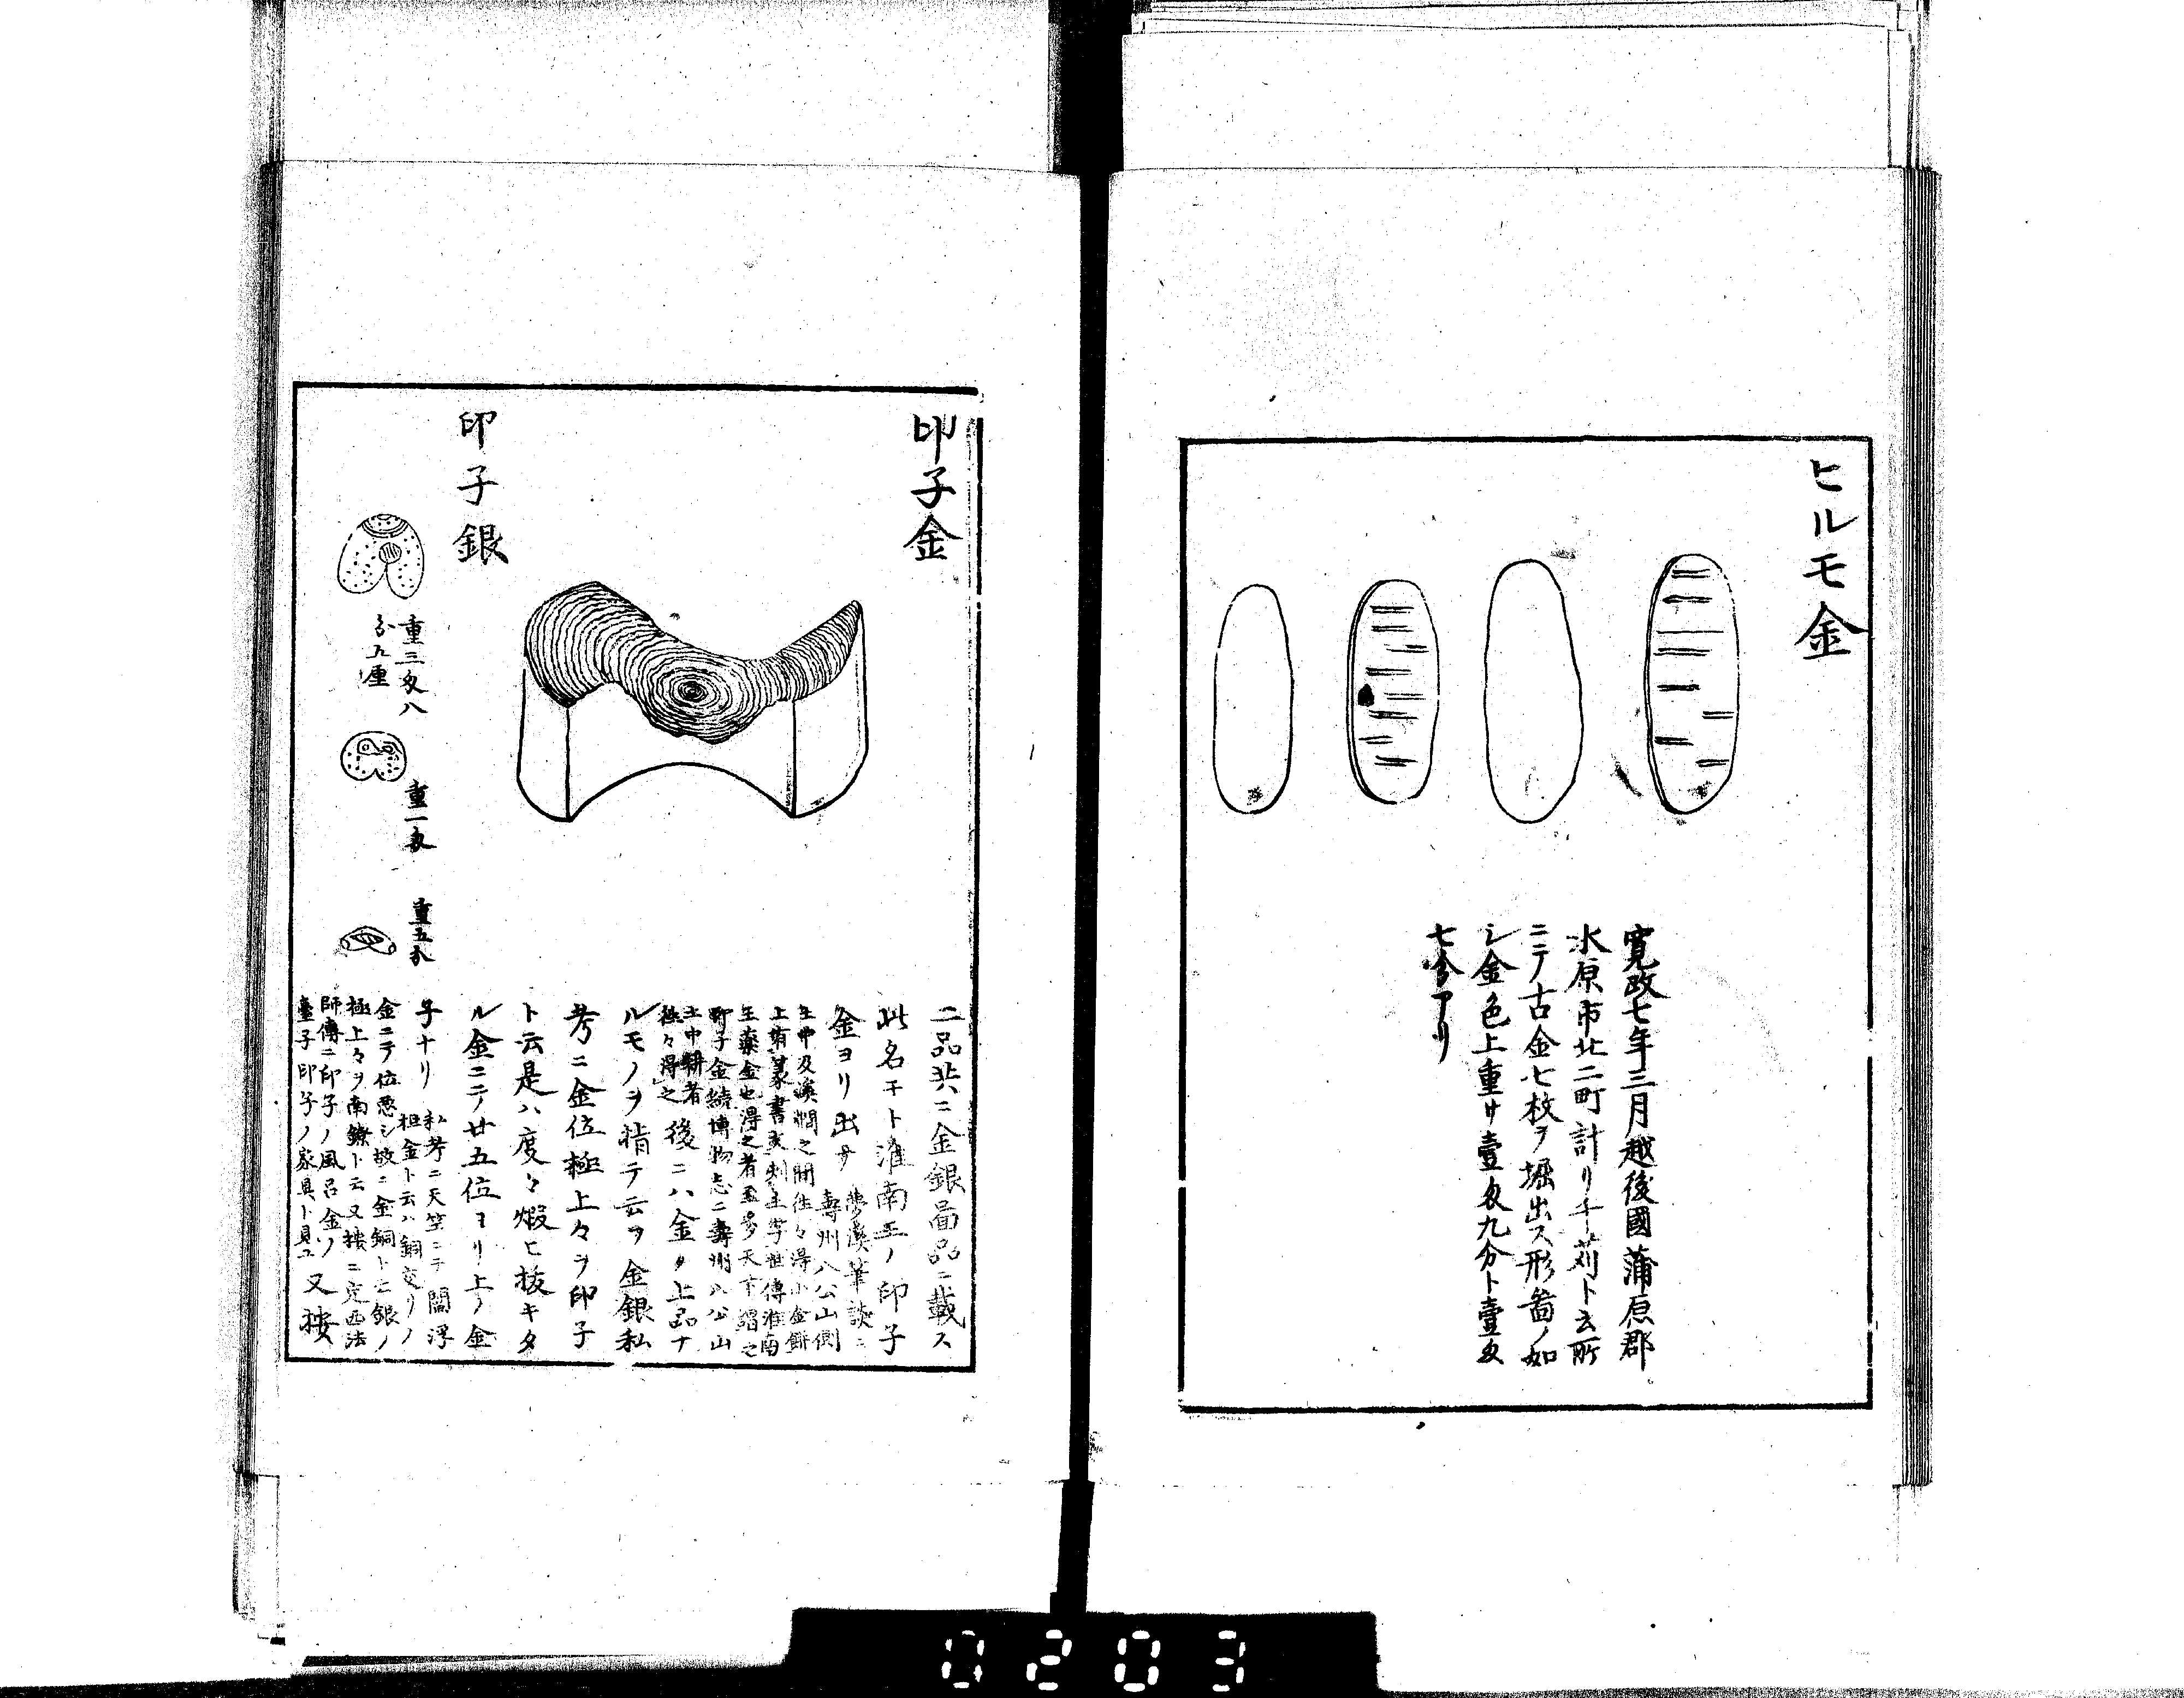 ヒルモ金
寛政七年三月越後國蒲原郡
水原市北二町計リ千苅ト云所
ニテ古金七枚ヲ堀出ス形啚ノ如
シ金色上重サ壹匁九分ト壹匁
七分アリ
印子金
二品共ニ金銀啚品ニ載ス
此名モト淮南王ノ印子
金ヨリ出ヅ 夢溪筆談ニ
壽州八公山側
土中及溪澗之間往々得小金餅
上有篆書劉主字世傳淮南
王藥金也得之者至多天下謂之
印子金續博物志ニ壽州八公山
土中耕者
往々得之 後ニハ金ノ上品ナ
ルモノヲ指テ云フ金銀私
考ニ金位極上々ヲ印子
ト云是ハ度々煅ヒ抜キタ
ル金ニテ廿五位ヨリ上ノ金
子ナリ 私考ニ天竺ニテ閻浮
檀金ト云ハ銅交リノ
金ニテ位悪シ故ニ金銅ト云銀ノ
極上々ヲ南鐐ト云又按ニ定西法
師傳ニ印子ノ風呂金ノ
臺子印子ノ家具ト見ユ 又按
印子銀
重三匁八
分五厘
重一匁
重五分
0203